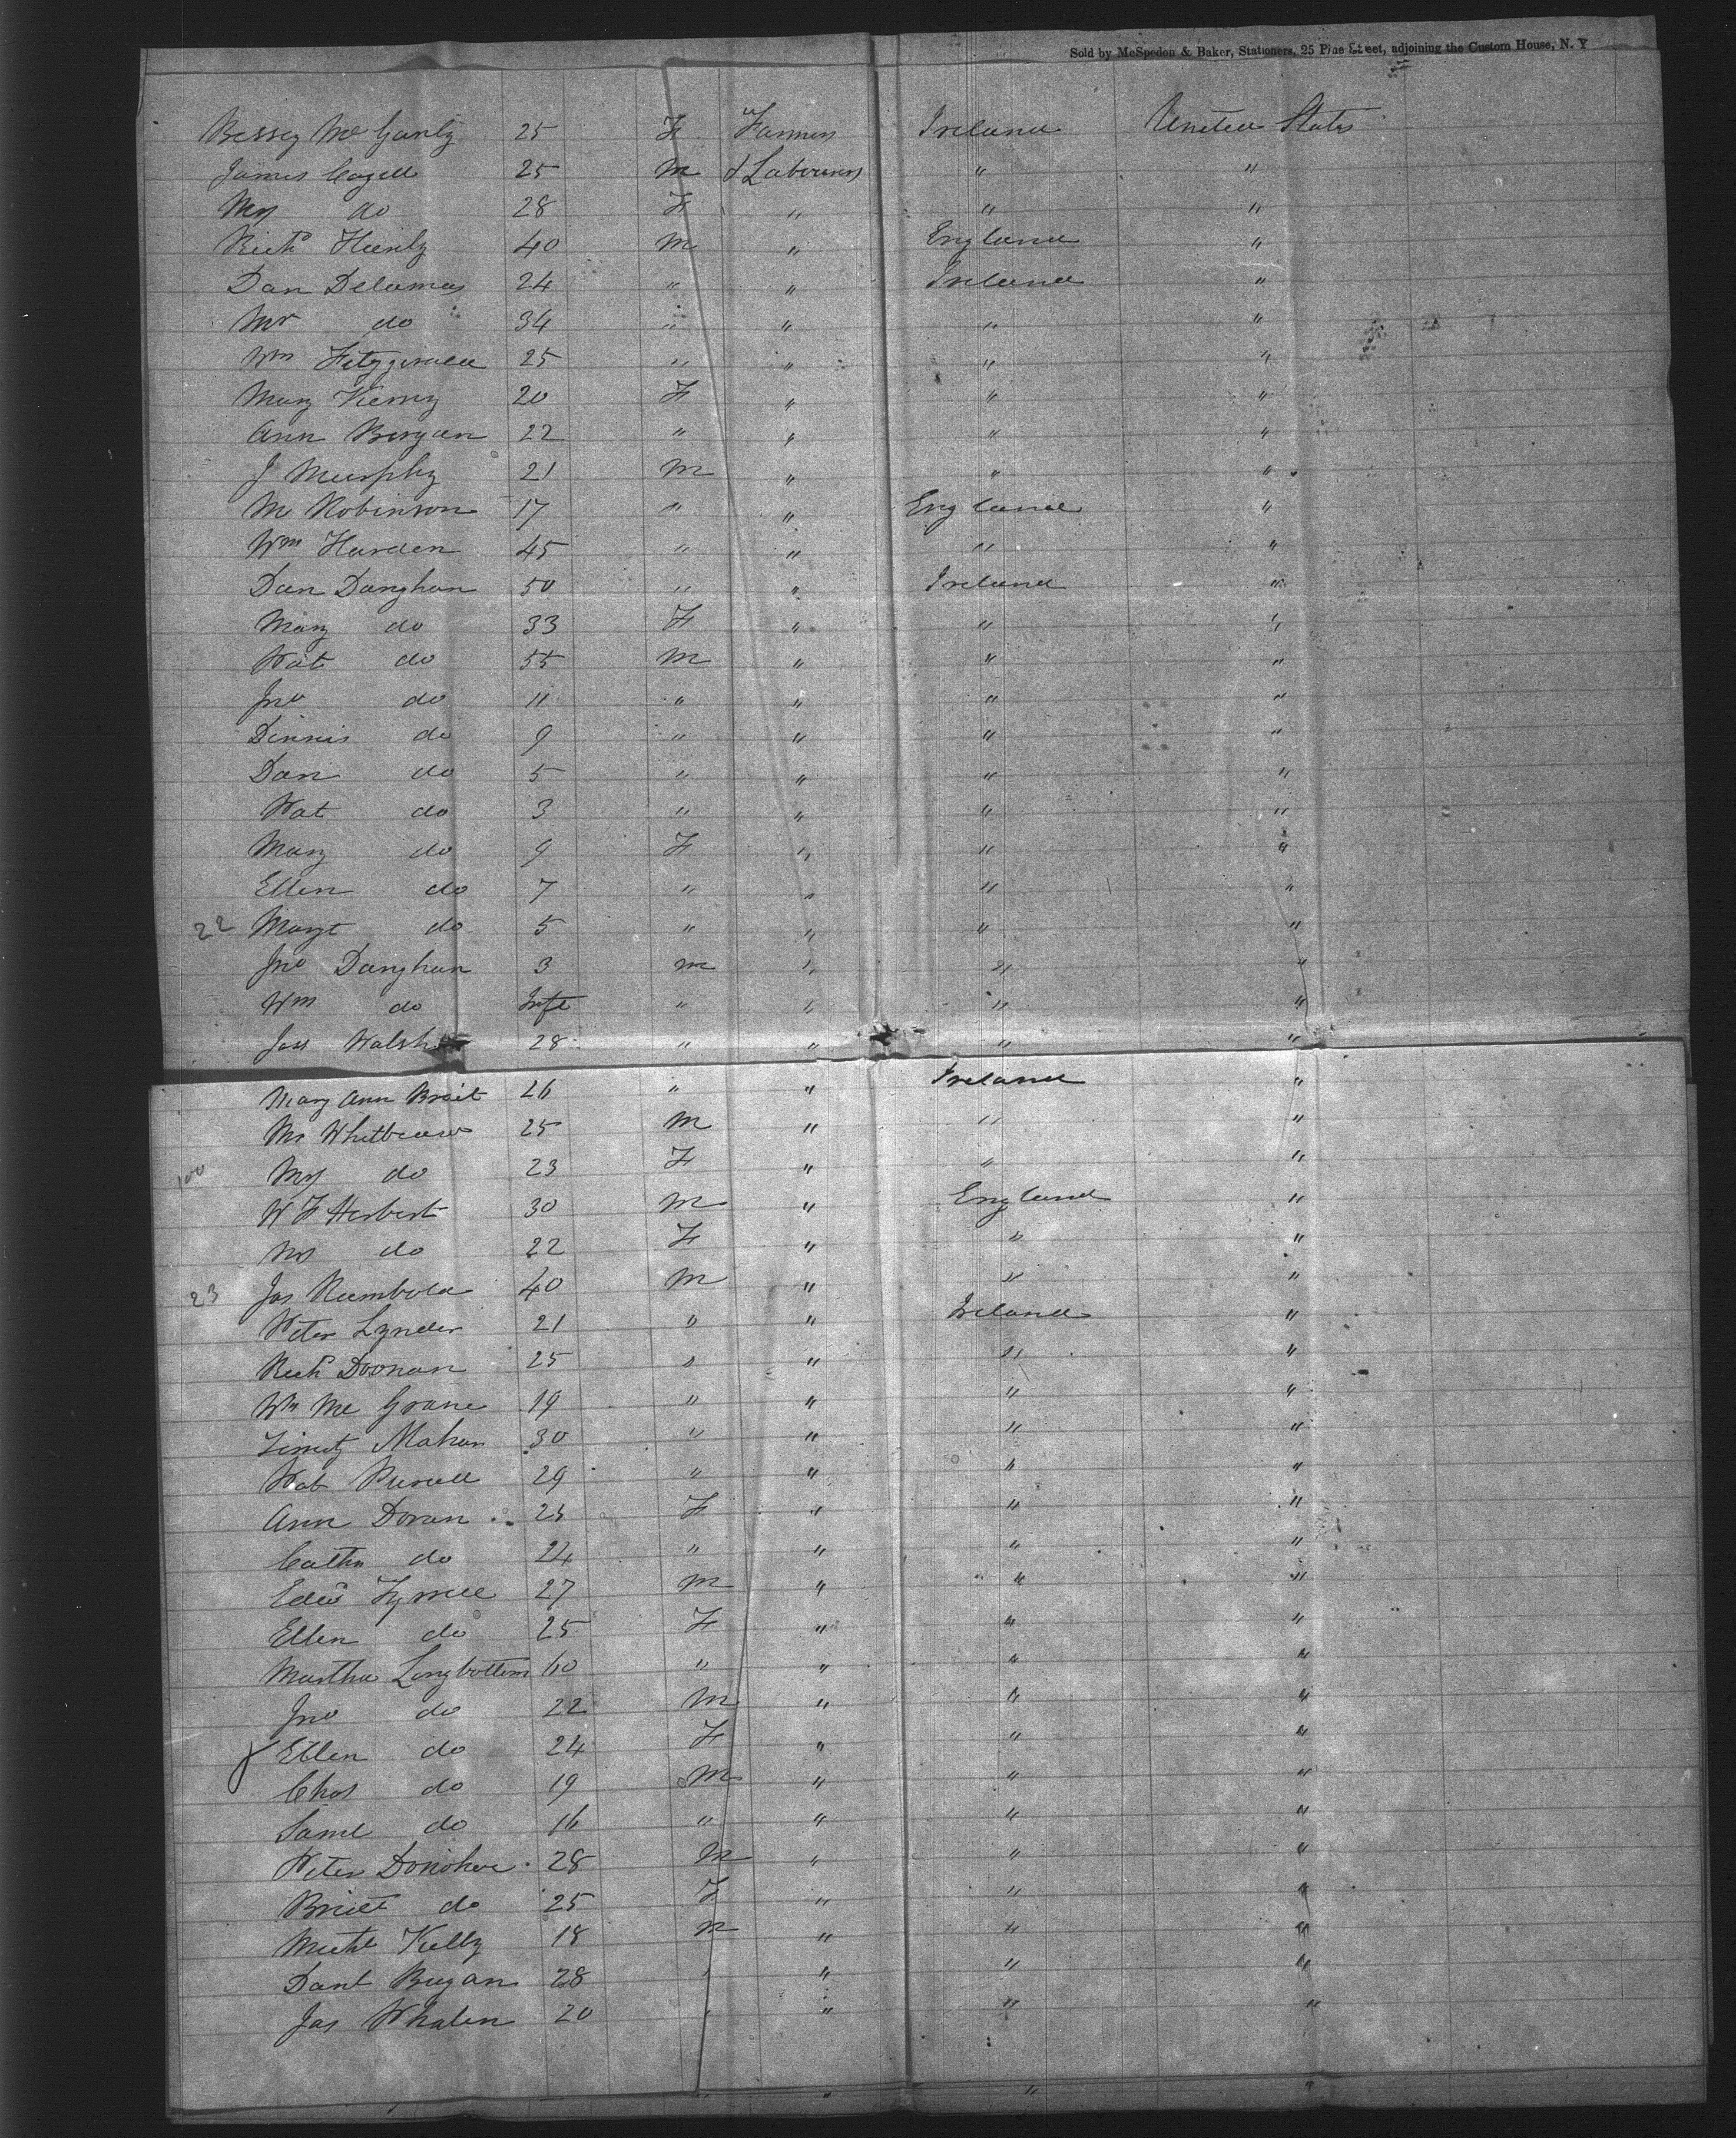 Sold by McSpedon & Baker, Stationers, 25 Pine Street, adjoining the Custom House, N. Y
Bessey Mc Ganly 25 F Farmers Ireland United States
James Cagill 25 M & Labourers " "
Mrs do 28 F " " "
Richd Hanly 40 M " England "
Dan Delamas 24 " " Ireland "
Mr do 34 " " " "
Wm Fitzgerald 25 " " " "
Mary Kenny 20 F " " "
Ann Bergan 22 " " " "
J Murphy 21 M " " "
M Robinson 17 " " England "
Wm Harden 45 " " " "
Dan Danghan 50 " " Ireland "
Mary do 33 F " " "
Pat do 55 M " " "
Jno do 11 " " " "
Dinnis do 9 " " " "
Dan do 5 " " " "
Pat do 3 " " " "
Mary do 9 F " " "
Ellen do 7 " " " "
22 Margt do 5 " " " "
Jno Danghan 3 M " " "
Wm do Inft " " " "
Jas Walsh 28 " " " "
Mary Ann Brait 26 " " Ireland "
Mr Whitbread 25 M " " "
100 Mrs do 23 F " " "
W F Herbert 30 M " England "
Mrs do 22 F " " "
23 Jas Rumbold 40 M " " "
Peter Lynder 21 " " Ireland "
Richd Doonan 25 " " " "
Wm Mc Grane 19 " " " "
Timoty Mahan 30 " " " "
Pat Pursell 29 " " " "
Ann Doran 25 F " " "
Cathn do 24 " " " "
Edwd Tyrrell 27 M " " "
Ellen do 25 F " " "
Martha Longbottom 60 " " " "
Jno do 22 M " " "
Ellen do 24 F " " "
Chas do 19 M " " "
Saml do 16 " " " "
Peter Donohoe 28 M " " "
Bridt do 25 F " " "
Michl Kelly 18 M " " "
Danl Bugan 28 " " " "
Jas Whalen 20 " " " "
" " " "